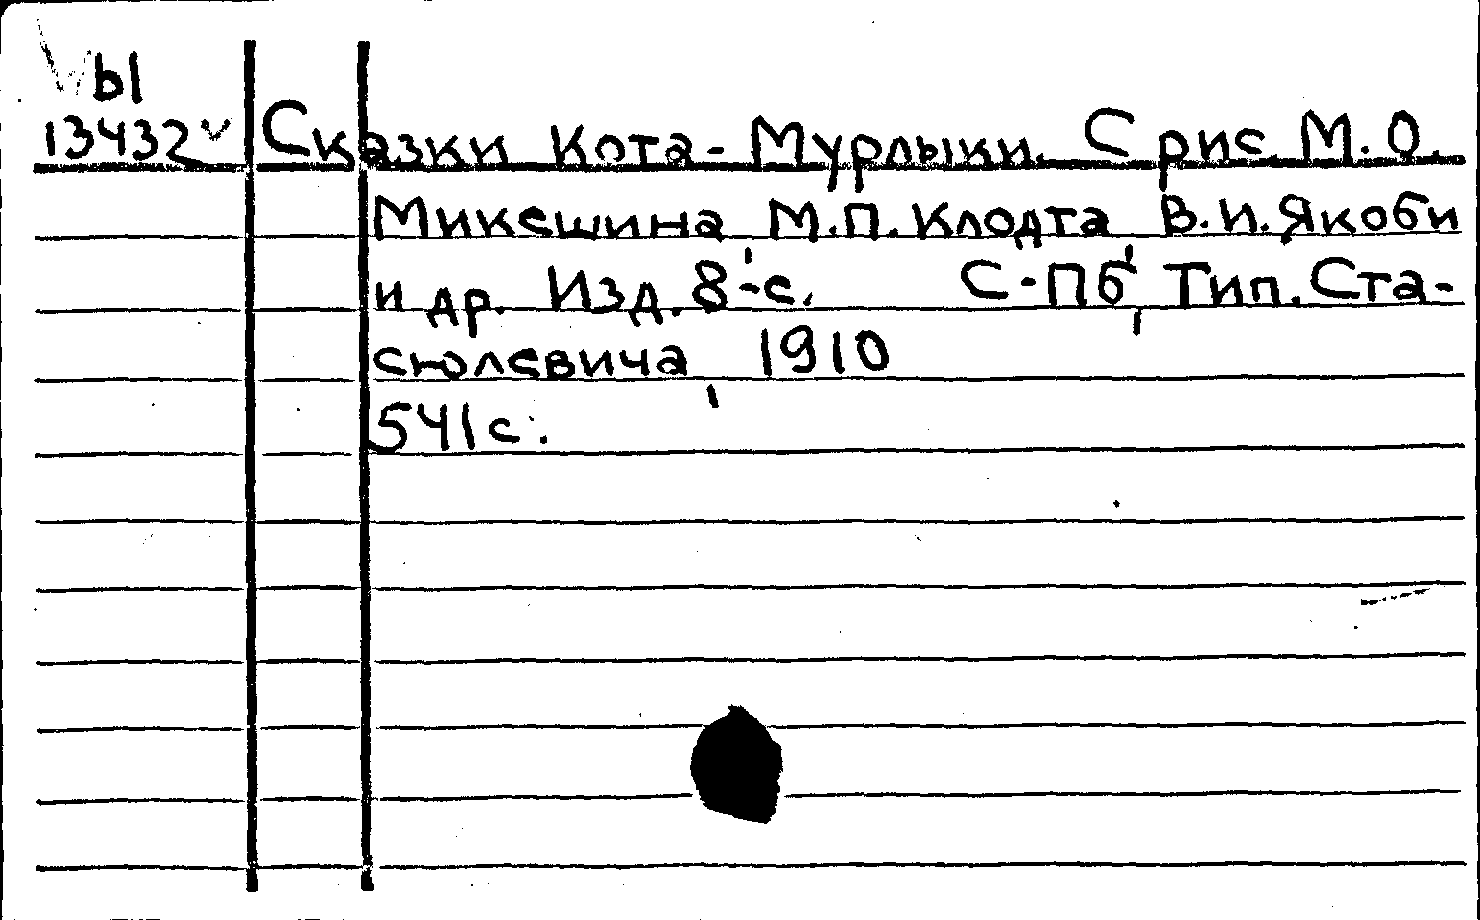 Ы
13432 Сказки Кота-Мурлыки. С рис. М.О.
Микешина, М.П.Клодта, В.И.Якоби
и др. Изд. 8-е. С-Пб, Тип. Ста-
сюлевича, 1910
541с.